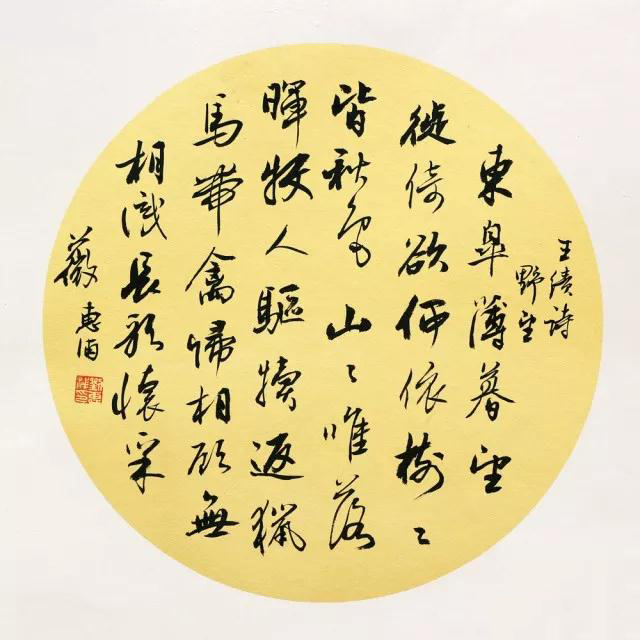 王績詩
野望
東皋薄暮望
徙倚欲何依樹々
皆秋色山々唯落
暉牧人驅犢返獵
馬帶禽歸相顧無
相識長歌懷采
薇
惠